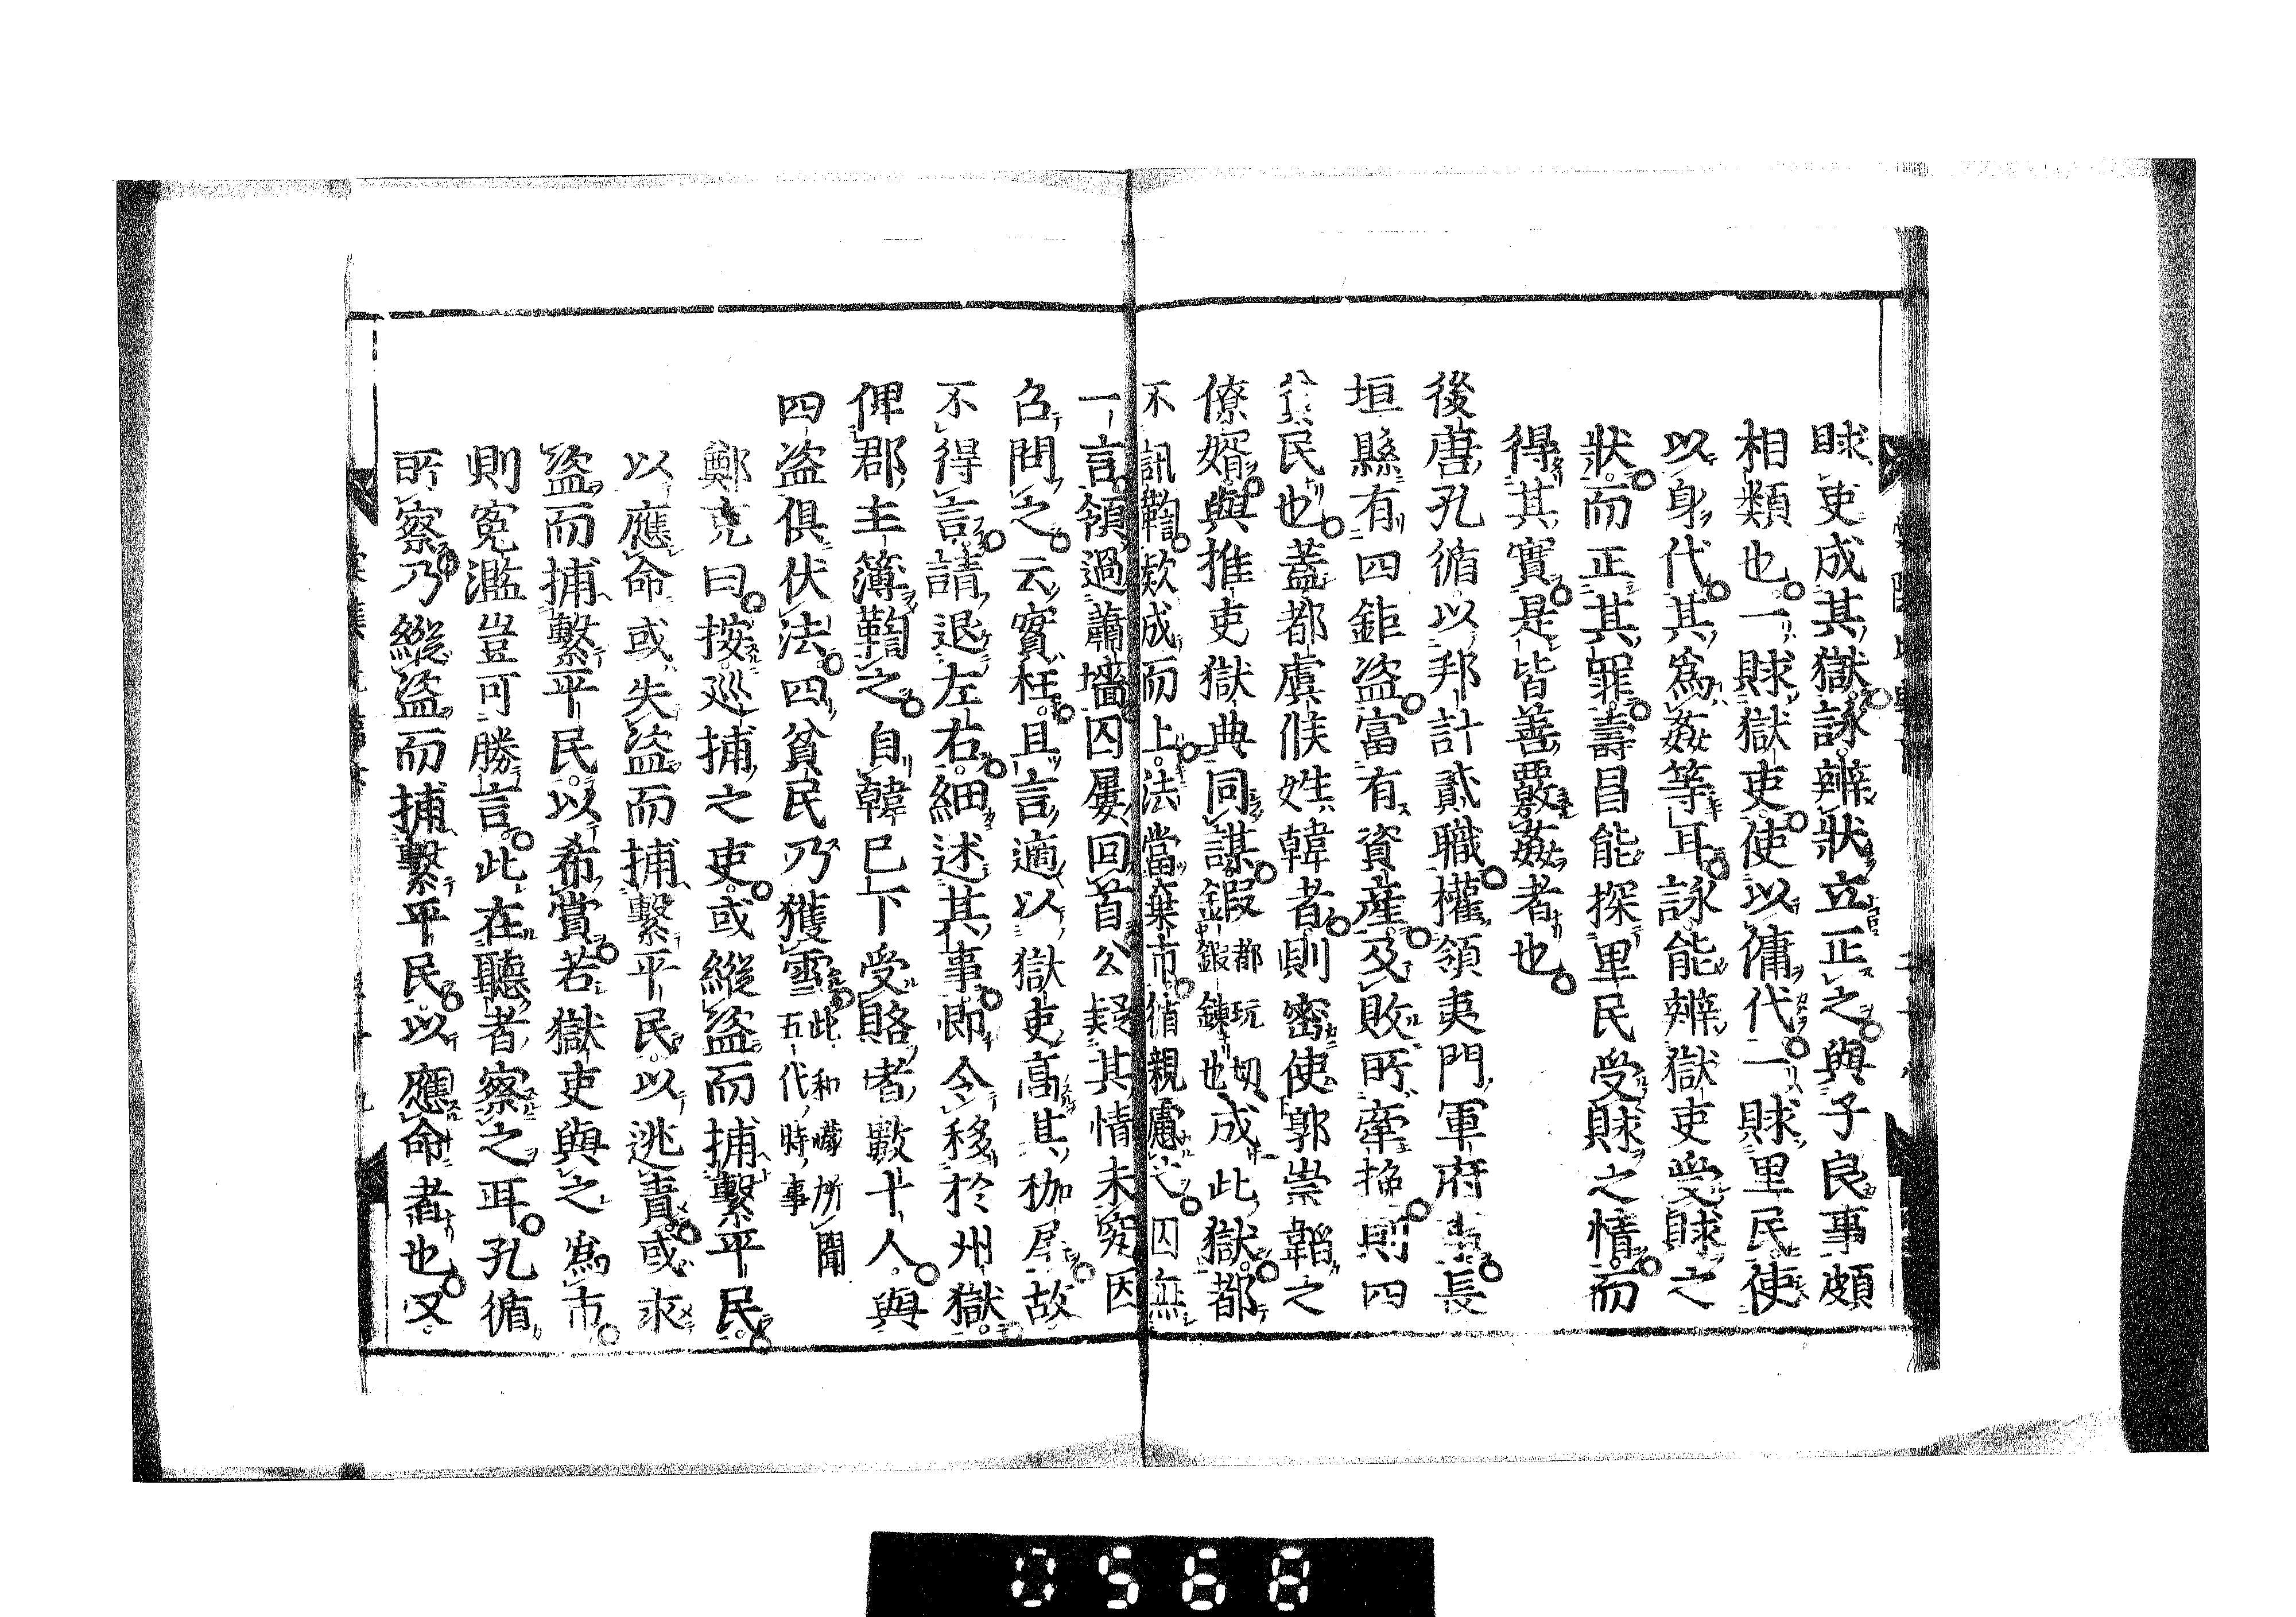 賕吏成其獄詠辨狀立正之與子良事頗
相類也一賕獄吏使以傭代二賕里民使
以身代其爲姦等耳詠能辨獄吏受賕之
狀而正其罪壽昌能探里民受賕之情而
得其實是皆善覈姦者也
後唐孔循以邦計貳職權領夷門軍府事長
垣縣有四鉅盜富有資産及敗所牽挽則四
貧民也蓋都虞候姓韓者則密使郭崇韜之
僚壻與推吏獄典同謀鍛都玩切鍛鍊也成此獄都
不訊鞫欵成而上法當棄市循親慮之囚無
一言領過蕭墻囚屢回首公疑其情未究因
召問之云實枉且言適以獄吏高其枷尾故
不得言請退左右細述其事即令移於州獄
俾郡主簿鞫之自韓已下受賂者數十人與
四盜俱伏法四貧民乃獲雪此和㠓所聞五代時事
鄭克曰按巡捕之吏或縱盜而捕繫平民
以應命或失盜而捕繫平民以逃責或求
盜而捕繫平民以希賞若獄吏與之爲市
則寃濫豈可勝言此在聽者察之耳孔循
所察乃縱盜而捕繫平民以應命者也又
0568